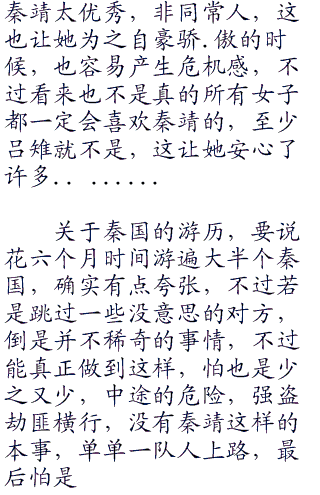 秦靖太优秀，非同常人，这
也让她为之自豪骄.傲的时
候，也容易产生危机感，不
过看来也不是真的所有女子
都一定会喜欢秦靖的，至少
吕雉就不是，这让她安心了
许多．．......
关于秦国的游历，要说
花六个月时间游遍大半个秦
国，确实有点夸张，不过若
是跳过一些没意思的对方，
倒是并不稀奇的事情，不过
能真正做到这样，怕也是少
之又少，中途的危险，强盗
劫匪横行，没有秦靖这样的
本事，单单一队人上路，最
后怕是